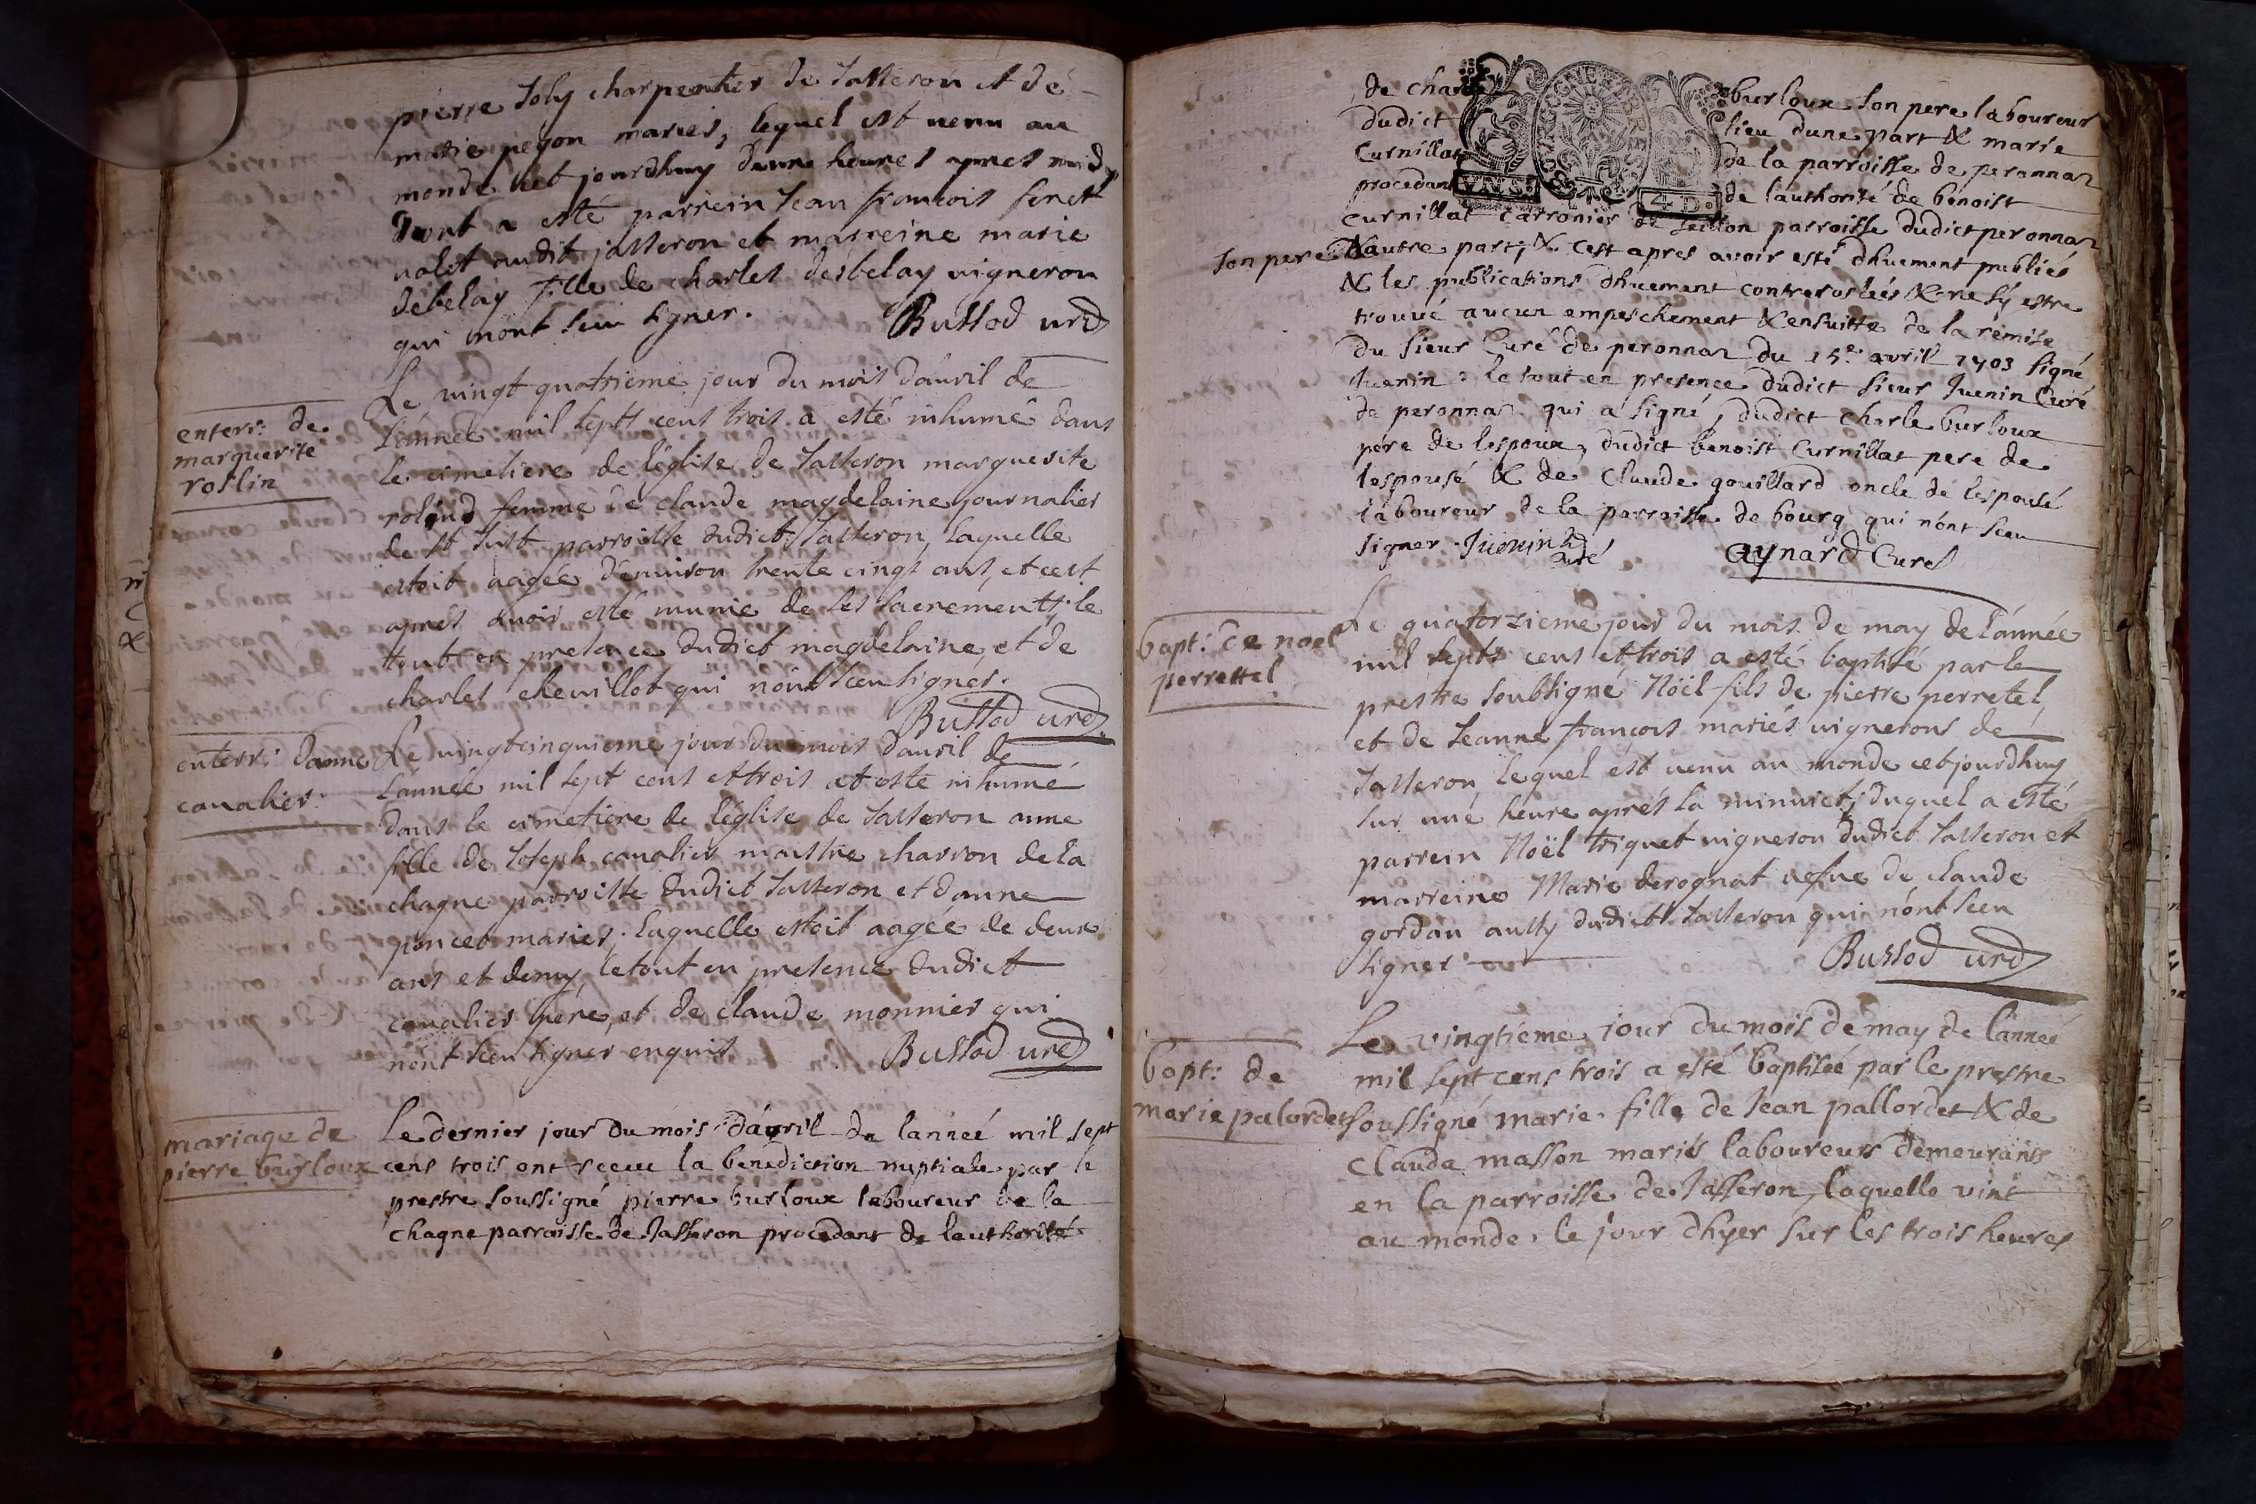 pierre Joly charpentier de Jasseron et de
marie peyon mariés, lequel est venu au
monde cet jourdhuy deux heures apres midy
dont a esté parrein Jean francois feret
valet audit jasseron et marreine marie
debelay fille de charles desbelay vigneron
qui n'ont sceu signer. Bussod curé
enterr: de
marguerite
roslin
Le vingt quatrieme jour du mois dauril de
l'année mil sept cens trois a esté inhumé dans
le cimetiere de l'église de Jasseron marguerite
femme de claude magdelaine journalier
de st Just parroisse dudict Jasseron, laquelle
estoit aagée d'environ trente cinq ans, et cest
aprés avoir esté munie de ses sacrements; le
tout en presence dudict magdelaine, et de
charles chevillot qui nont sceu signer.
Bussod curé
enterr: danne
cavalier.
Le vingtcinquieme jour du mois dauril de
l'année mil sept cens et trois at esté inhumé
dans le cimetiere de l'église de Jasseron anne
fille de Joseph cavalier maistre charron de la
chagne parroisse dudict Jasseron et danne
poncet mariés; laquelle estoit aagée de deux
ans et demy, le tout en presence dudict
cavalier pere, et de claude monnier qui
nont sceu signer enquis Bussod curé
mariage de
pierre burloux
Le dernier jour du mois d'auril de lanneé mil sept
cens trois ont receu la benediction nuptiale par le
prestre soussigné pierre burloux laboureur de la
chagne parroisse de Jasseron procedant de lauthorité
de charle burloux son pere laboureur
dudict lieu dune part & marie
Curnillat de la parroisse de peronnaz
procedant de lauthorité de benoist
VN S. 4 D.
Curnillat carronier de parroisse dudict peronnaz
son pere
dautre part; & cest apres avoir esté dhuement publiés
& les publications dhuement controrolleés & ne sy estre
trouvé aucun empeschement & ensuitte de la remise
du sieur Curé de peronnaz du 15e avril 1703 signé
Juenin: le tout en presence dudict sieur Juenin Curé
de peronna qui a signé, dudict charle burloux
pere de lespoux, dudict benoist Curnillat pere de
lespousé & de Claude gouillard oncle de lespousé
laboureur de la parroisse de bourg qui n'ont sceu
signer. Juenin curé Aynard Curé
bapt: de noel
perrettel
Le quatorzieme jour du mois de may de l'année
mil septs cens et trois a esté baptisé par le
prestre soubsigné Noël fils de pierre perretel,
et de Jeanne francois mariés vignerons de
Jasseron lequel est venu au monde cet jourdhuy
sur une heure aprés la minuict; duquel a esté
parrein Noël triquet vigneron dudict Jasseron et
marreine Marie derognat vefue de claude
gordan aussy dudict Jasseron qui n'ont sceu
signer Bussod curé
bapt: de
marie palordet
Le vingtieme jour du mois de may de lanneé
mil sept cens trois a esté baptiseé par le prestre
soussigné marie fille de Jean pallordet & de
Clauda masson mariés laboureurs demeurants
en la parroisse de Jasseron, laquelle vint
au monde le jour dhyer sur les trois heures